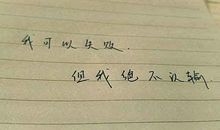 我可以失败.
但我绝不认输.